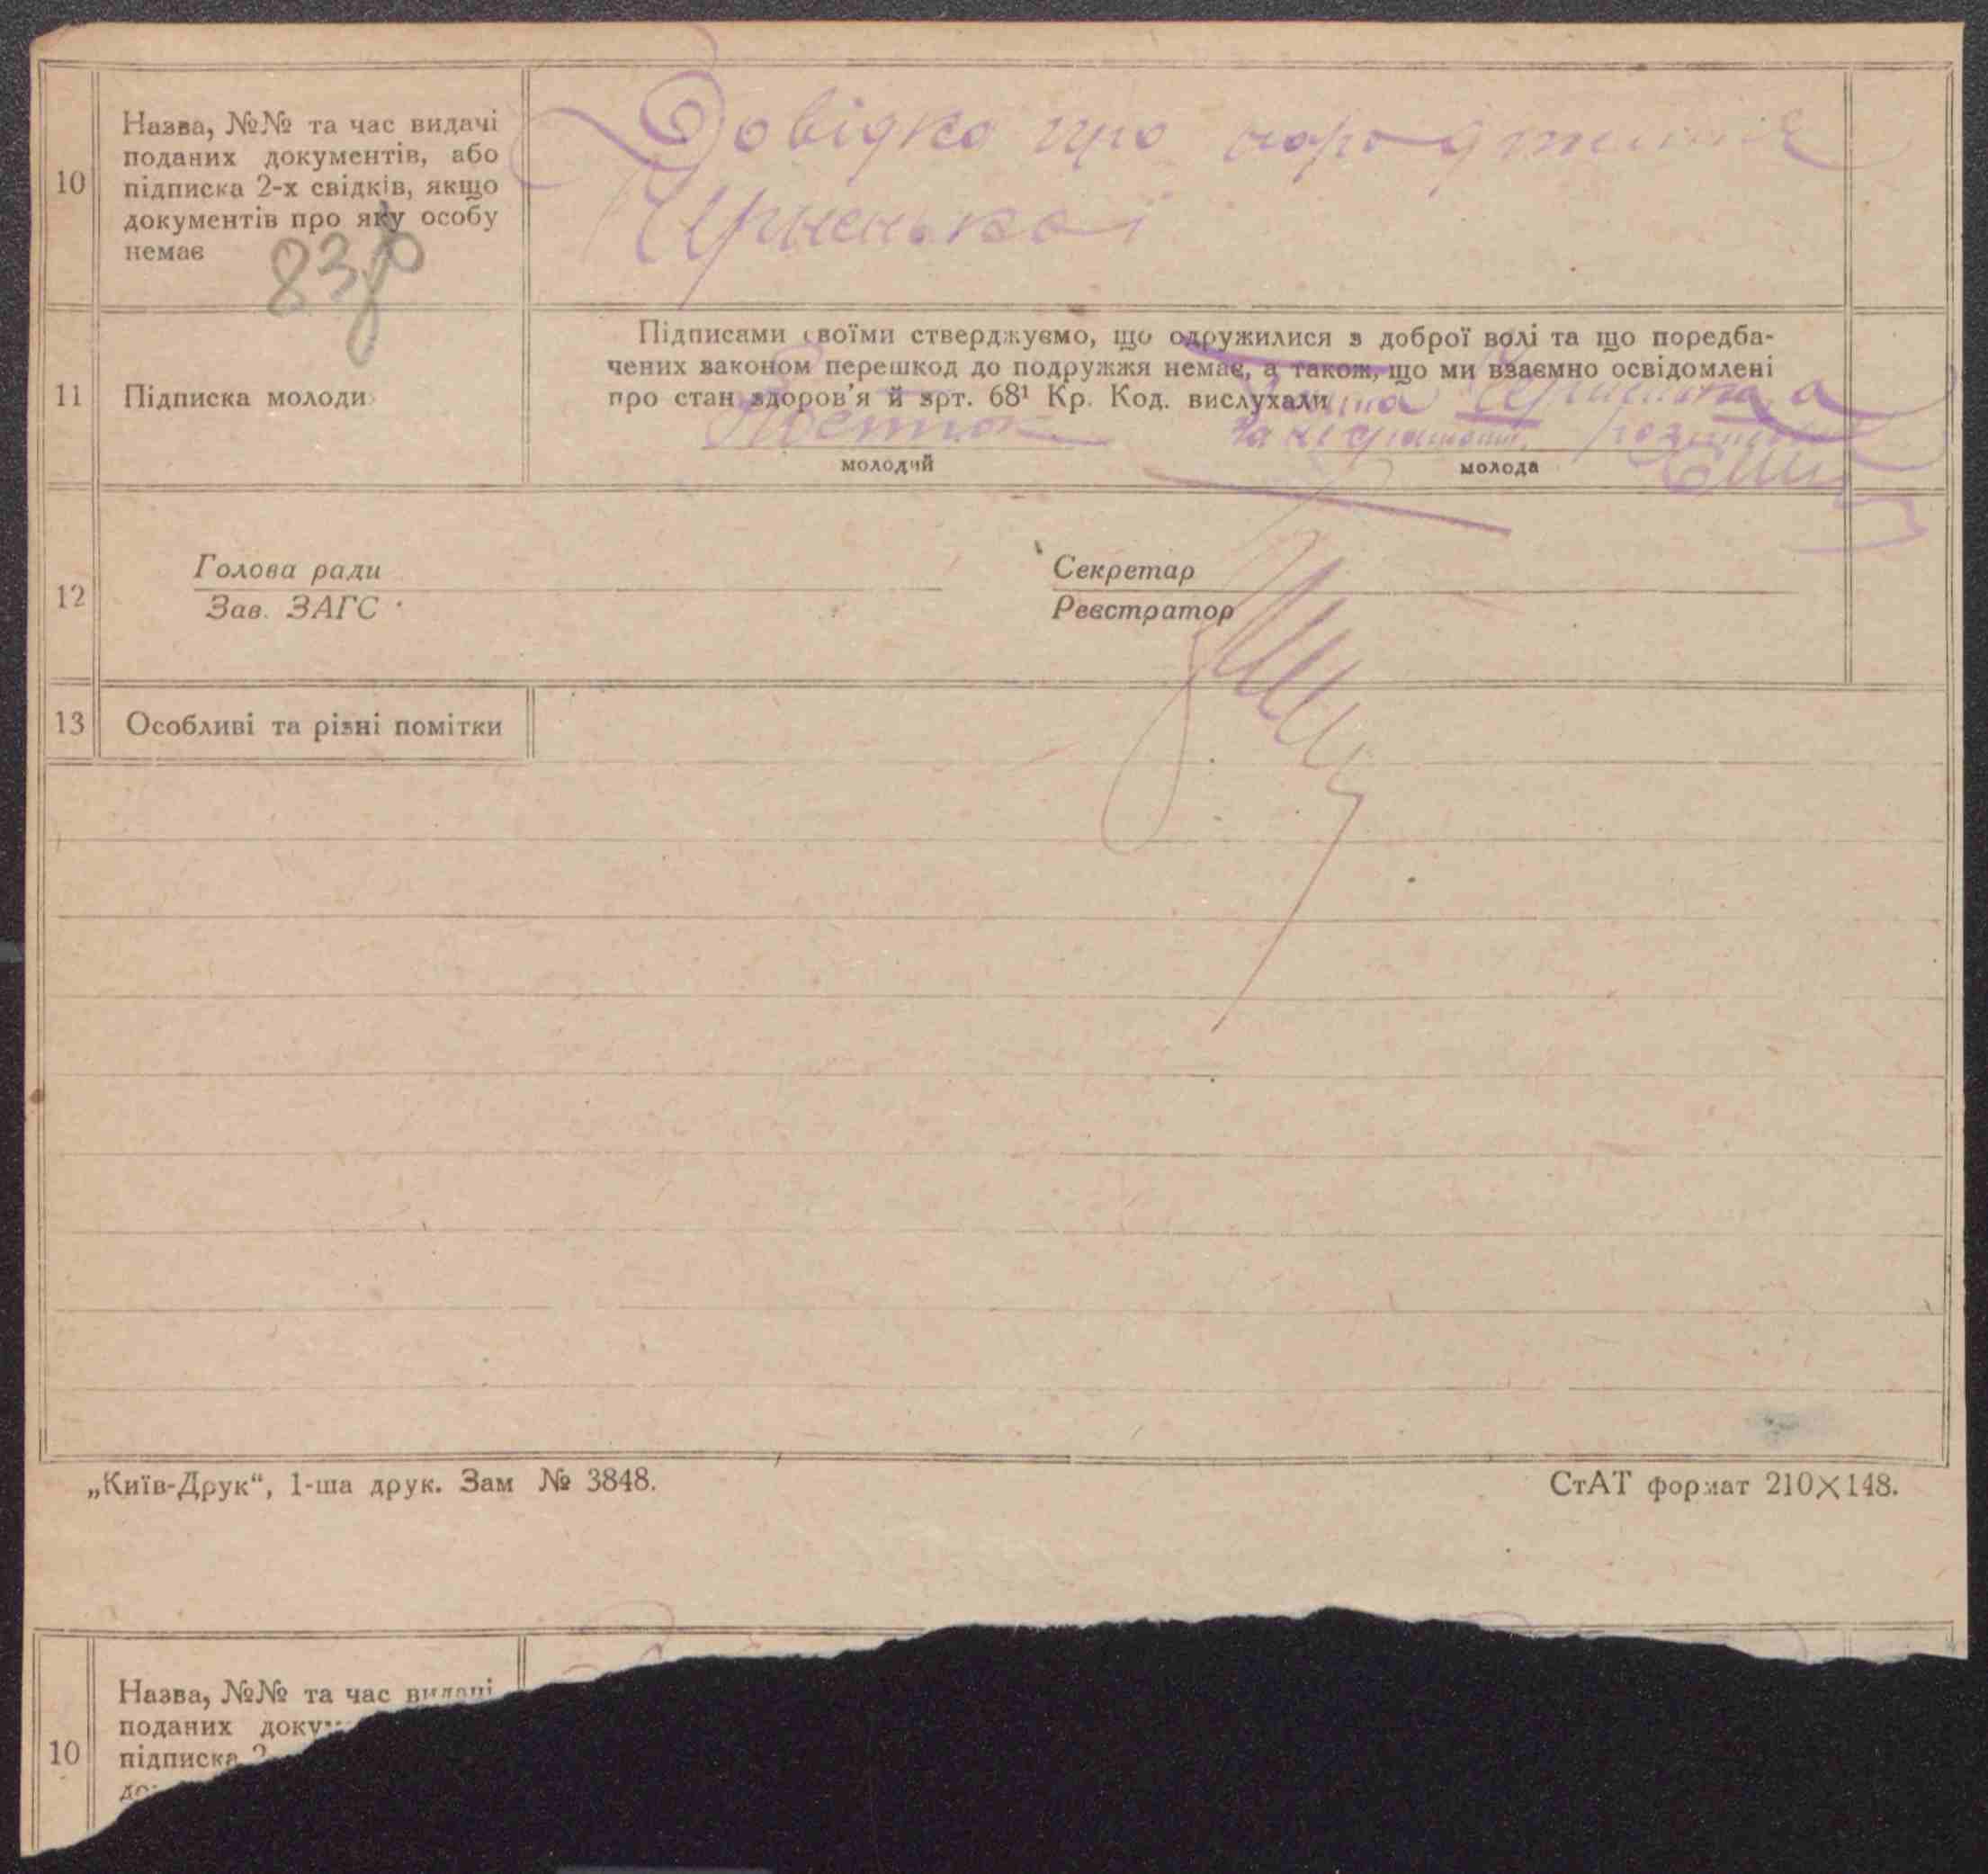 10
Назва, №№ та час видачі
поданих документів, або
підписка 2-х свідків, якщо
документів про яку особу
немає
83
Довідка про народження
Черненької
11
Підписка молоди
Підписами своїми стверджуємо, що одружилися з доброї волі та що поредба-
чених законом перешкод до подружжя немає, а також, що ми взаємно освідомлені
про стан здоров'я й зрт. 68¹ Кр. Код. вислухали
молодий
молода
за неграмотн.
12
Голова ради
Зав. ЗАГС
Секретар
Реєстратор
13
Особливі та різні помітки
„Київ-Друк“, 1-ша друк. Зам № 3848.
СтАТ формат 210×148.
10
Назва, №№ та час видачі
поданих доку
підписка 2
до